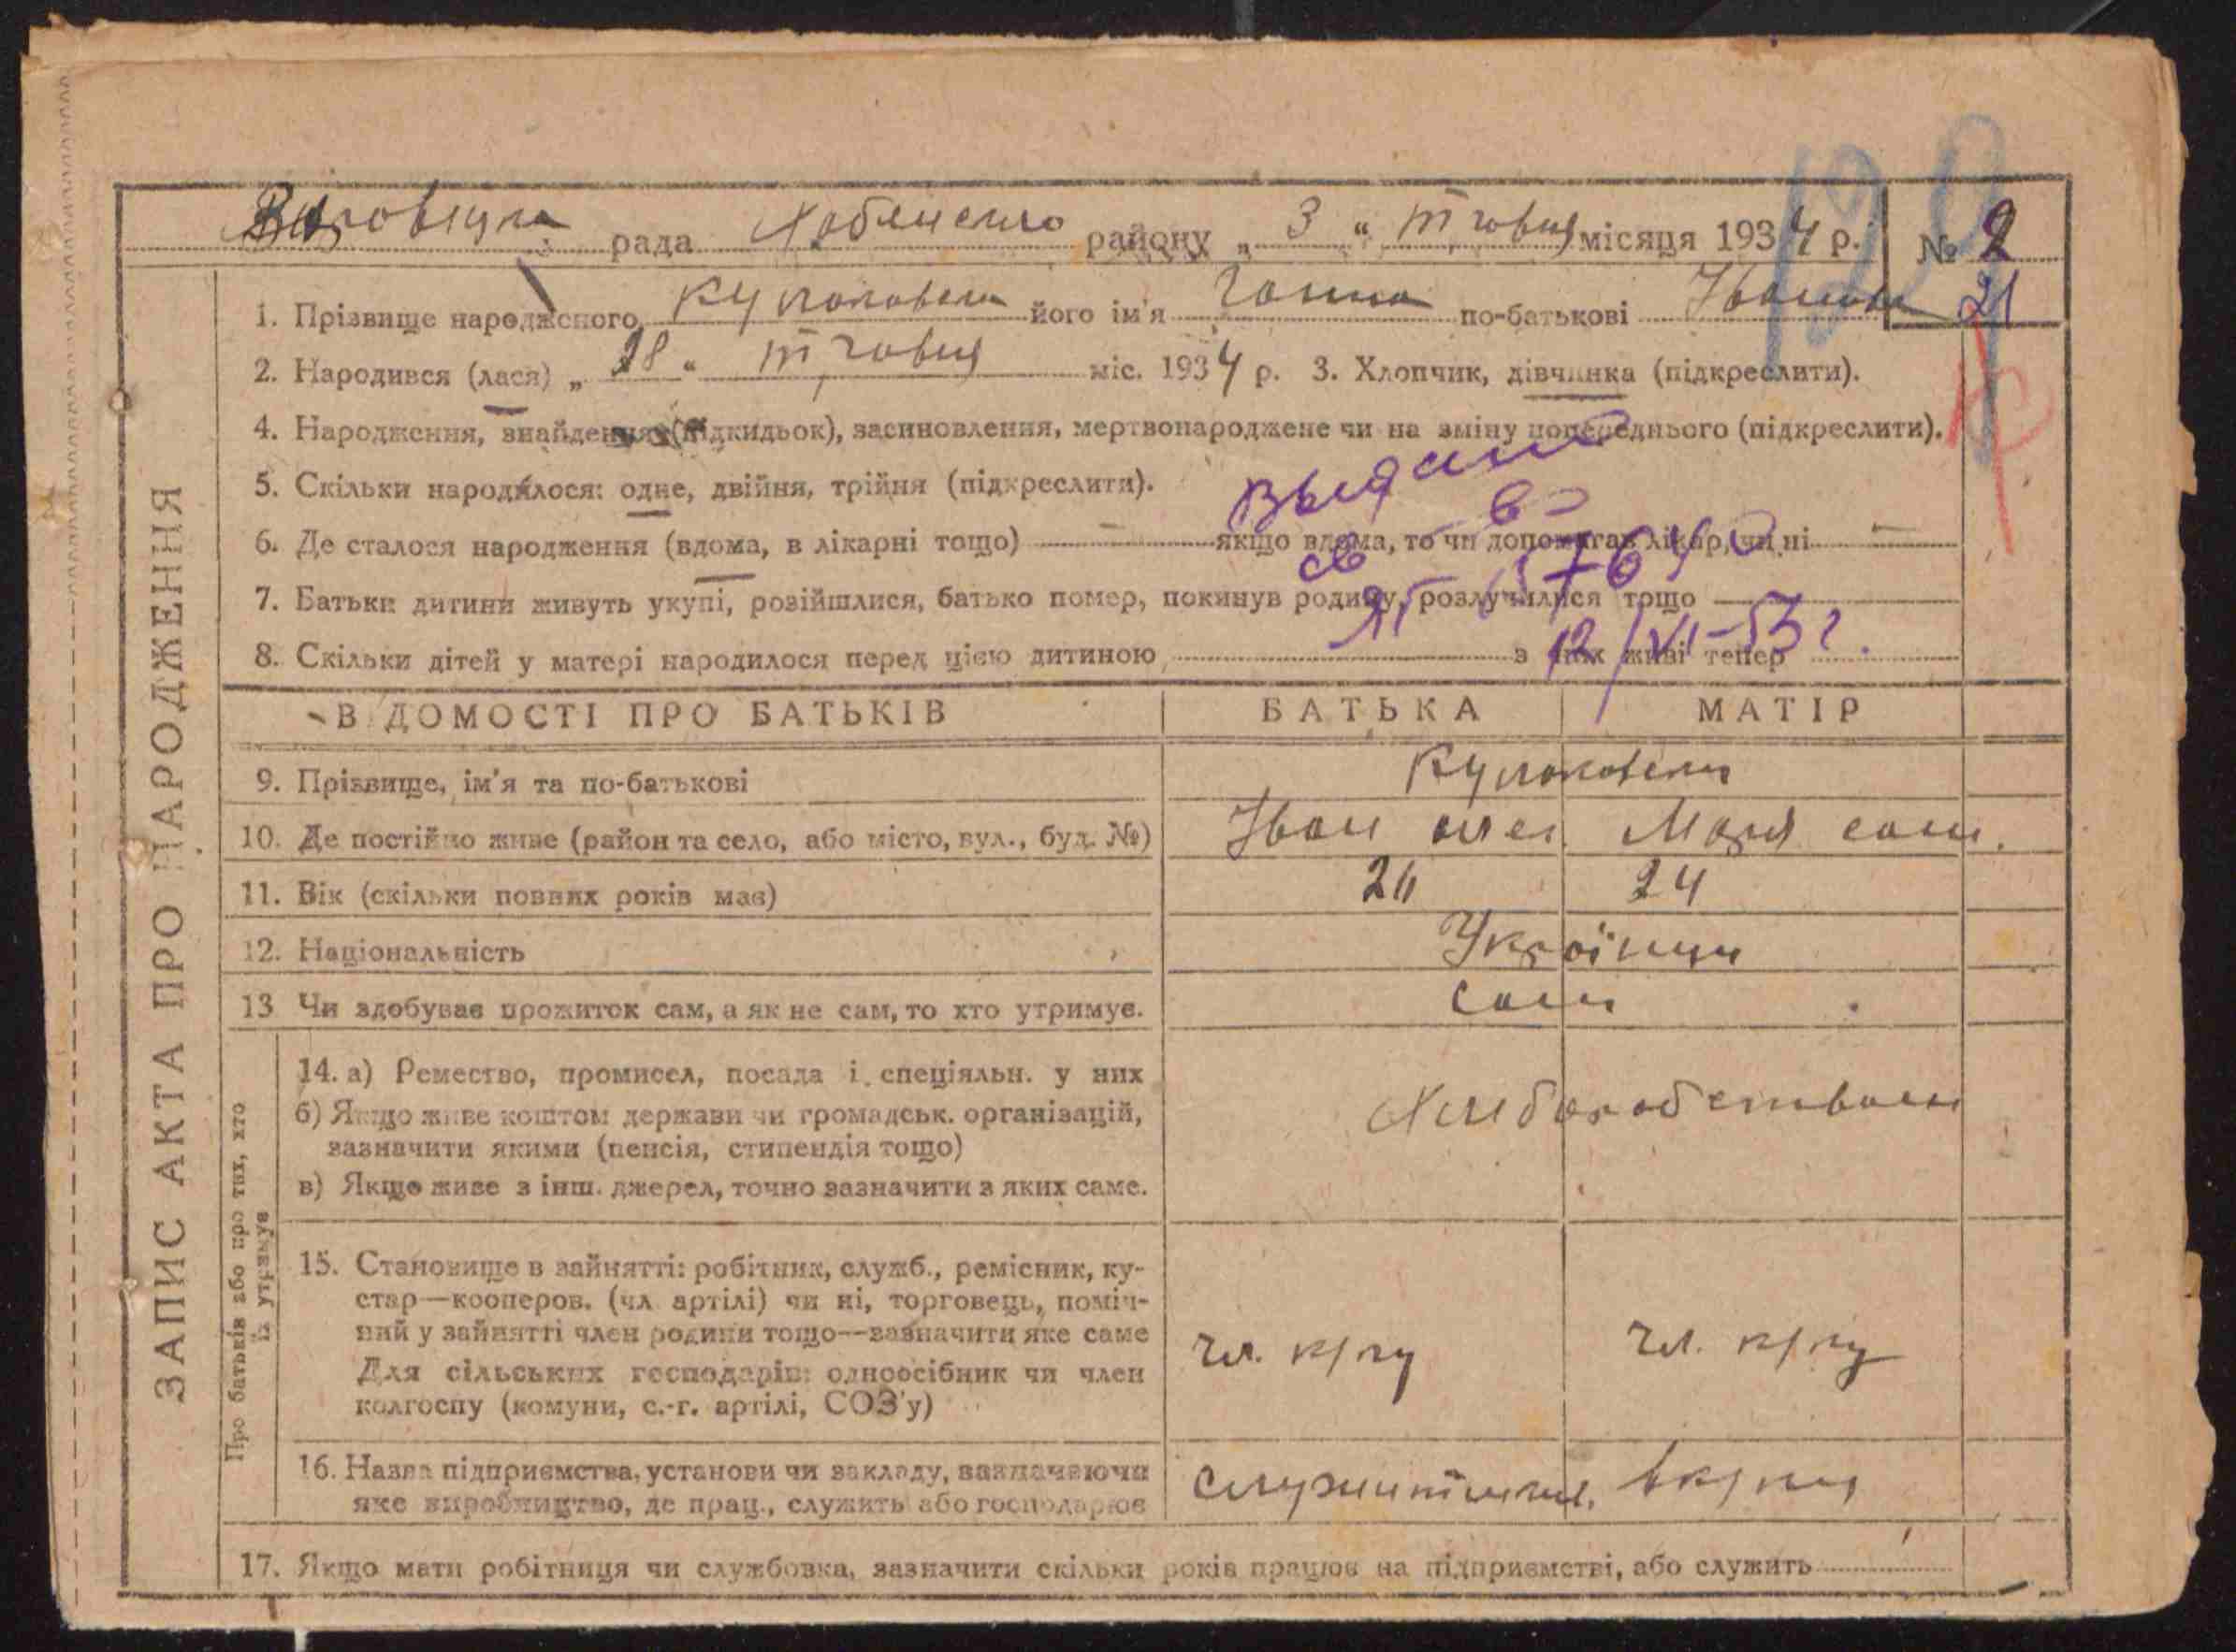 рада Хабенського району „ 3 “ місяця 1934 р. № 2
21
1. Прізвище народженого, його ім'я Ганна по-батькові Іванов
2. Народився (лася) „ 28 “ міс. 1934 р. 3. Хлопчик, дівчинка (підкреслити).
4. Народження, знайдення (підкидьок), засиновлення, мертвонароджене чи на зміну попереднього (підкреслити).
5. Скільки народилося: одне, двійня, трійня (підкреслити).
6. Де сталося народження (вдома, в лікарні тощо) — якщо вдома, то чи допомагав лікар, чи ні —
7. Батьки дитини живуть укупі, розійшлися, батько помер, покинув родину, розлучилися тощо
8. Скільки дітей у матері народилося перед цією дитиною з них живі тепер
12/VI-53 г.
ВІДОМОСТІ ПРО БАТЬКІВ БАТЬКА МАТІР
9. Прізвище, ім'я та по-батькові
10. Де постійно живе (район та село, або місто, вул., буд. №) Іван
11. Вік (скільки повних років має) 26 24
12. Національність Українци
13 Чи здобуває прожиток сам, а як не сам, то хто утримує. сами
14. а) Ремество, промисел, посада і спеціяльн. у них
б) Якщо живе коштом держави чи громадськ. організацій,
зазначити якими (пенсія, стипендія тощо)
в) Якщо живе з інш. джерел, точно зазначити з яких саме.
15. Становище в зайнятті: робітник, служб., ремісник, ку-
стар—кооперов. (чл артілі) чи ні, торговець, поміч-
ний у зайнятті член родини тощо—зазначити яке саме
Для сільських господарів: одноосібник чи член
колгоспу (комуни, с.-г. артілі, СОЗ'у)
чл. к/гу чл. к/гу
16. Назва підприємства, установи чи закладу, зазначаючи
яке виробництво, де прац., служить або господарює
17. Якщо мати робітниця чи службовка, зазначити скільки років працює на підприємстві, або служить
ЗАПИС АКТА ПРО НАРОДЖЕННЯ
Про батьків або про тих, хто
їх утримує